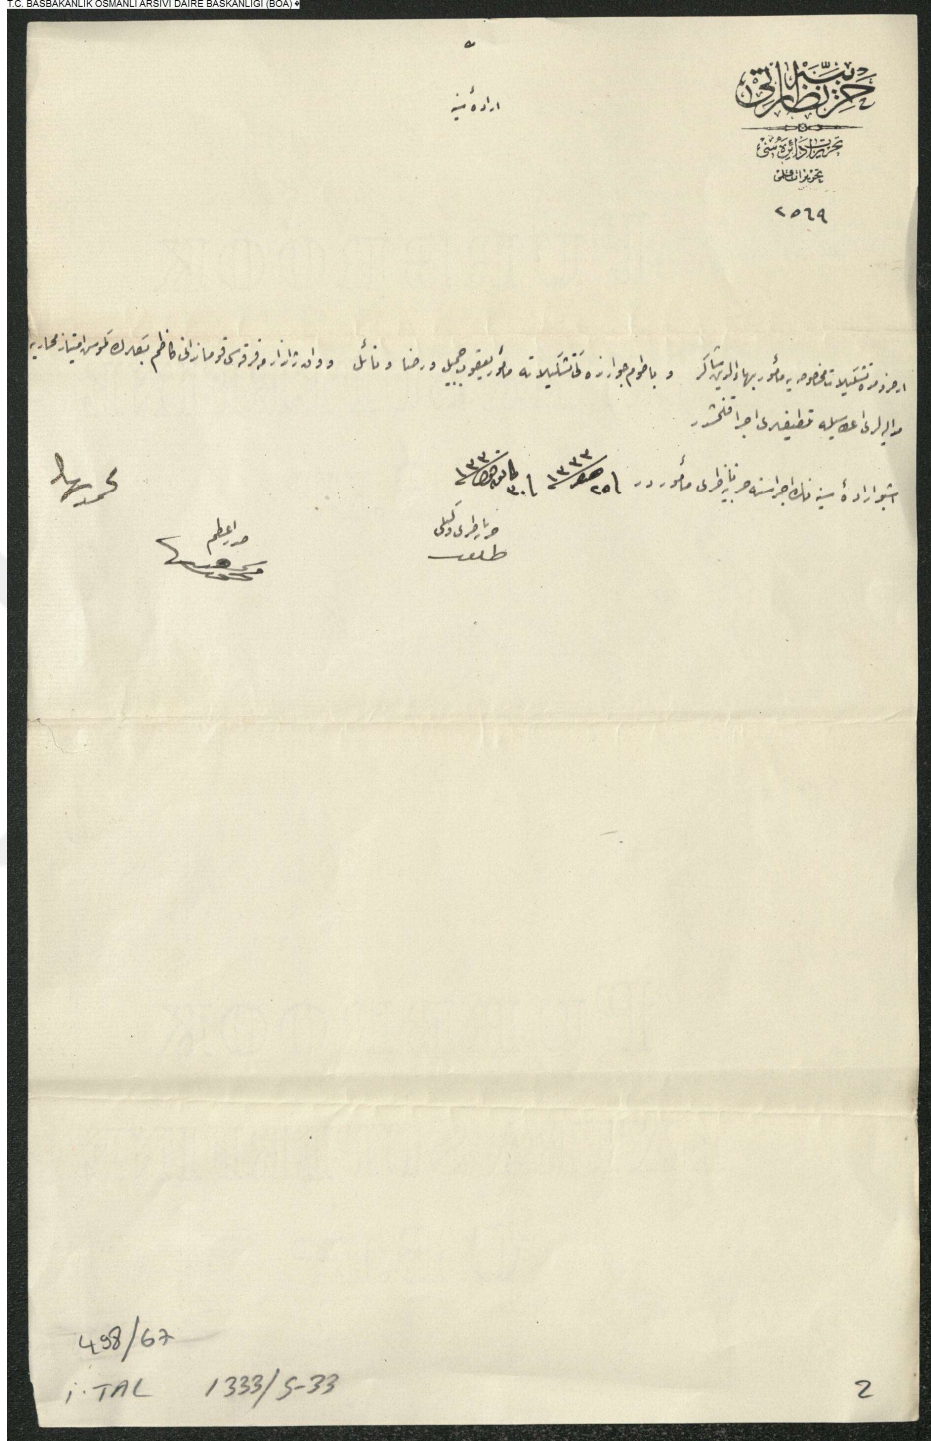 T.C. BAŞBAKANLIK OSMANLI ARŞİVİ DAİRE BAŞKANLIĞI (BOA)
حربیه نظارتی
تحریرات دائره‌سی
تحریرات قلمی
٢٥٦٩
ارادهٔ سنیه
ارضرومده تشکیلات مخصوصه‌یه مأمور بهاءالدین شاکر و باطوم جوارنده کی تشکیلاته مأمور یعقوب جمیل و رضا و نائل و وان ژاندارمه فرقه‌سی قوماندانی کاظم بکلره کوموش امتیاز محاربه
مدالیه‌لری اعطاسیله تلطیفلری اجرا قلنمشدر
اشبو ارادهٔ سنیه‌نك اجراسنه حربیه ناظری مأموردر
فی ٢٥ صفر ١٣٣٣ فی ٣٠ كانون اول ١٣٣٠
محمد رشاد
حربیه ناظری وکیلی
طلعت
صدر اعظم
محمد سعید
498/67
İ.TAL 1333/S-33
2